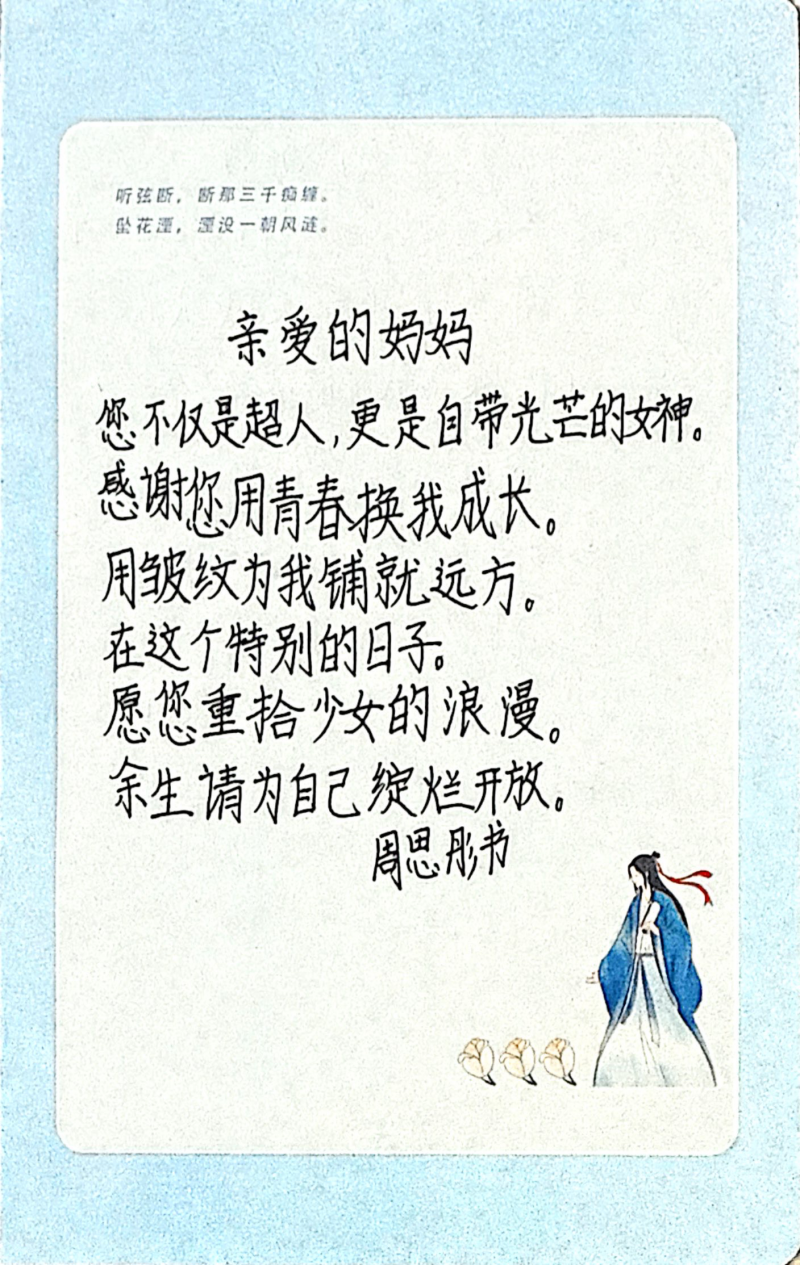 听弦断，断那三千痴缠。
坠花湮，湮没一朝风涟。
亲爱的妈妈
您不仅是超人，更是自带光芒的女神。
感谢您用青春换我成长。
用皱纹为我铺就远方。
在这个特别的日子。
愿您重拾少女的浪漫。
余生请为自己绽烂开放。
周思彤书